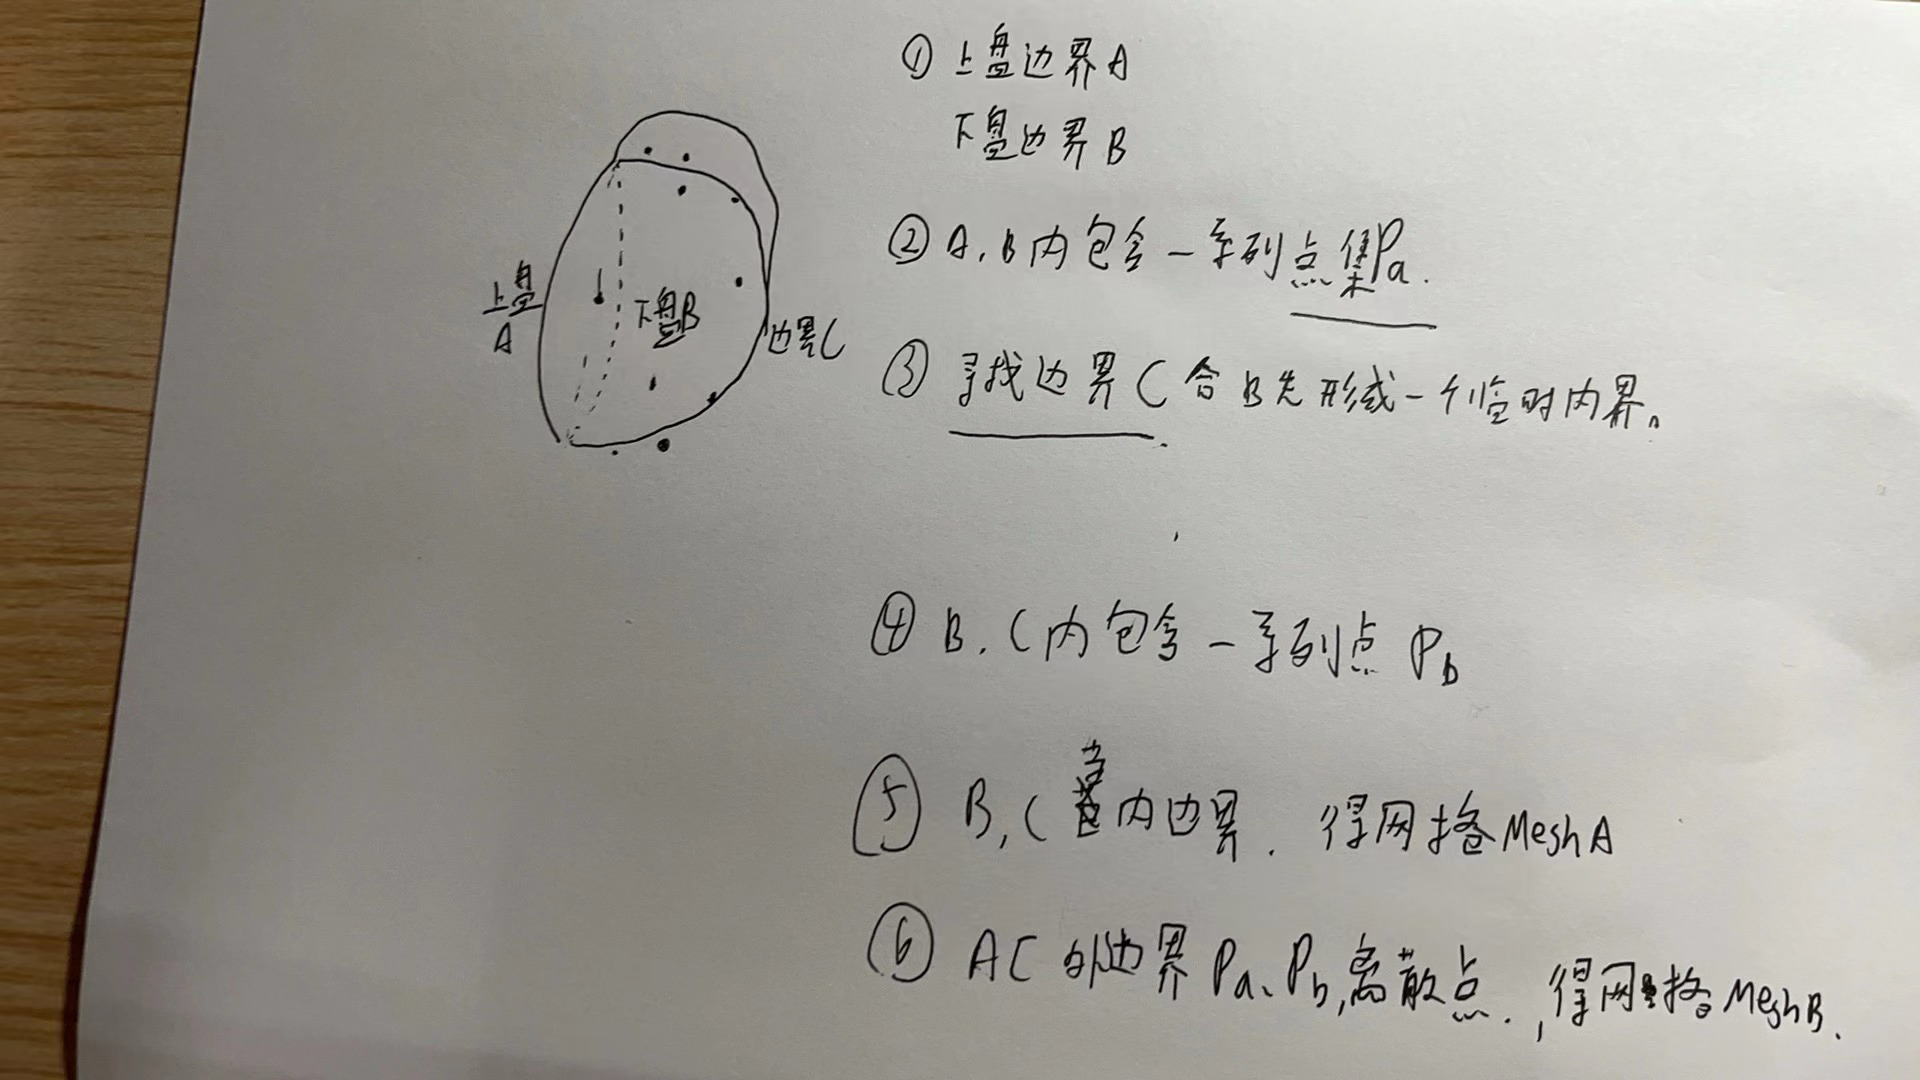 ① 上盘边界A
下盘边界B
② A.B内包含一系列点集Pa.
上盘
A
下盘B
边界C
③ 寻找边界C 合B先形成一个临时内界。
④ B.C内包含一系列点 Pb
⑤ B,C 当内边界. 得网格MeshA
⑥ AC 外边界 Pa、Pb,离散点.,得网格MeshB.